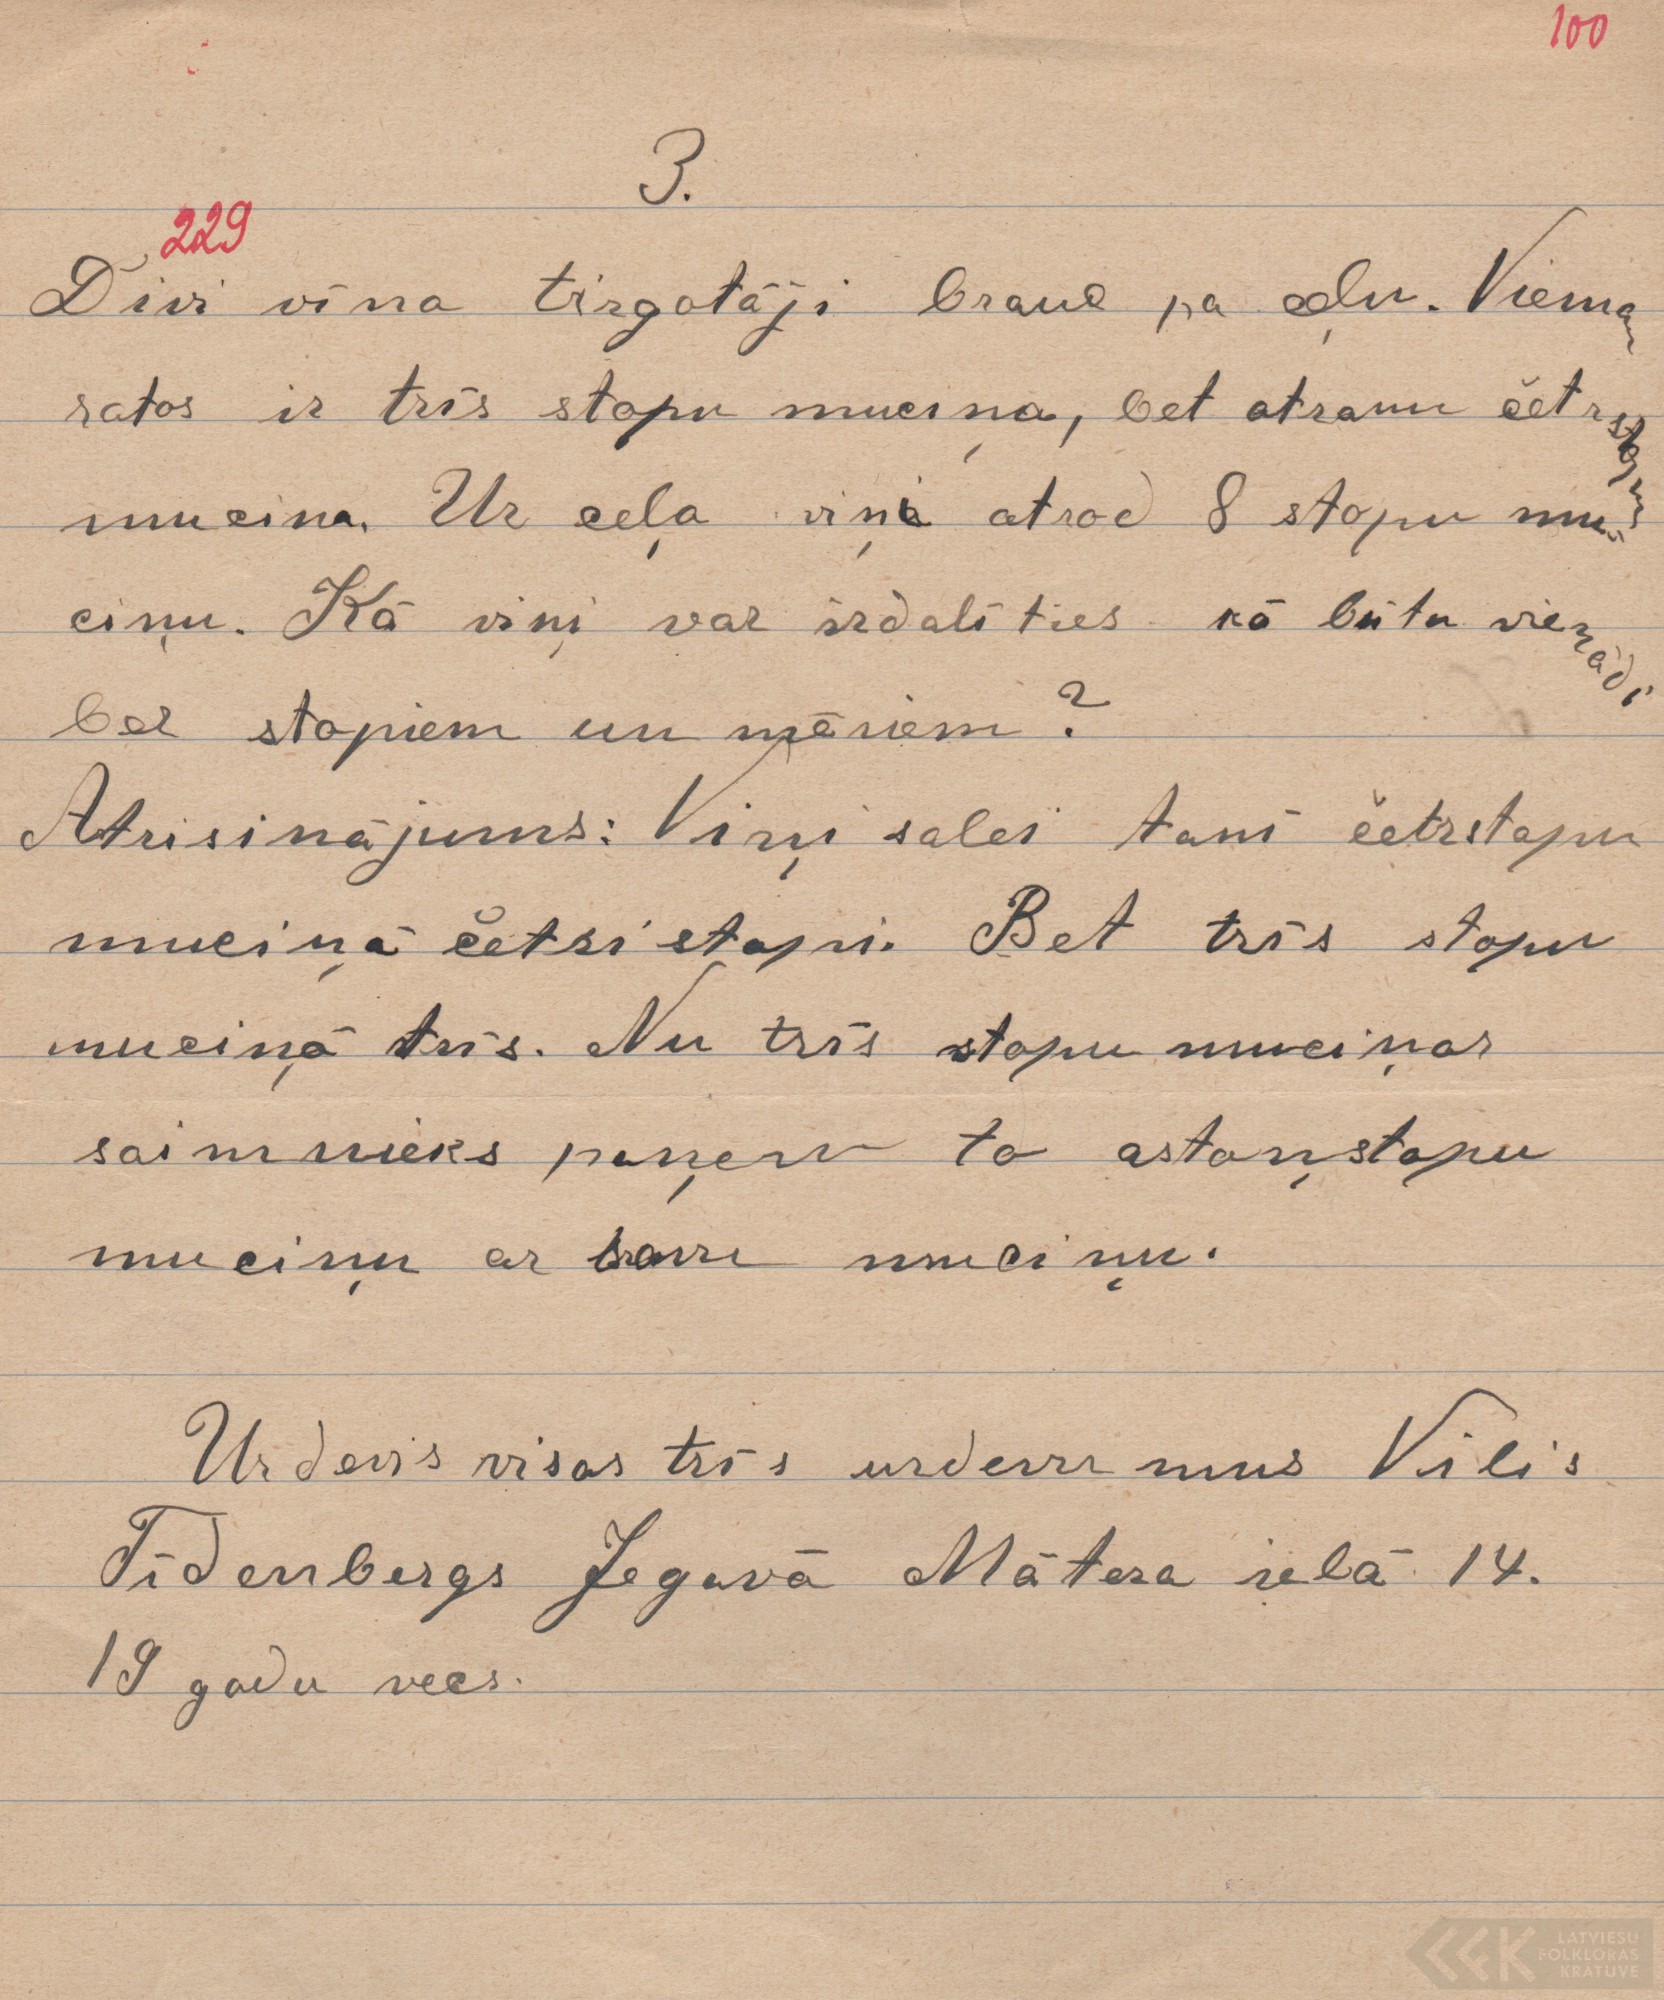 100
3.
229
Divi vīna tirgotāji brauc pa ceļu. Viena
ratos ir trīs stopu muciņa, bet otram četrstopu
mucina. Uz ceļa viņi atrod 8 stopu mu-
ciņu. Kā viņi var izdalīties kā būtu vienādi
bez stopiem un mēriem?
Atrisinājums: Viņi salei tanī četrstopu
muciņā četri stopi. Bet trīs stopu
muciņā trīs. Nu trīs stopu muciņas
saimnieks paņem to astoņstopu
muciņu ar savu muciņu.
Uzdevis visas trīs uzdevumus Vilis
Tīdenbergs Jegavā Mātera ielā 14.
19 gadu vecs.
LATVIEŠU
FOLKLORAS
KRĀTUVE